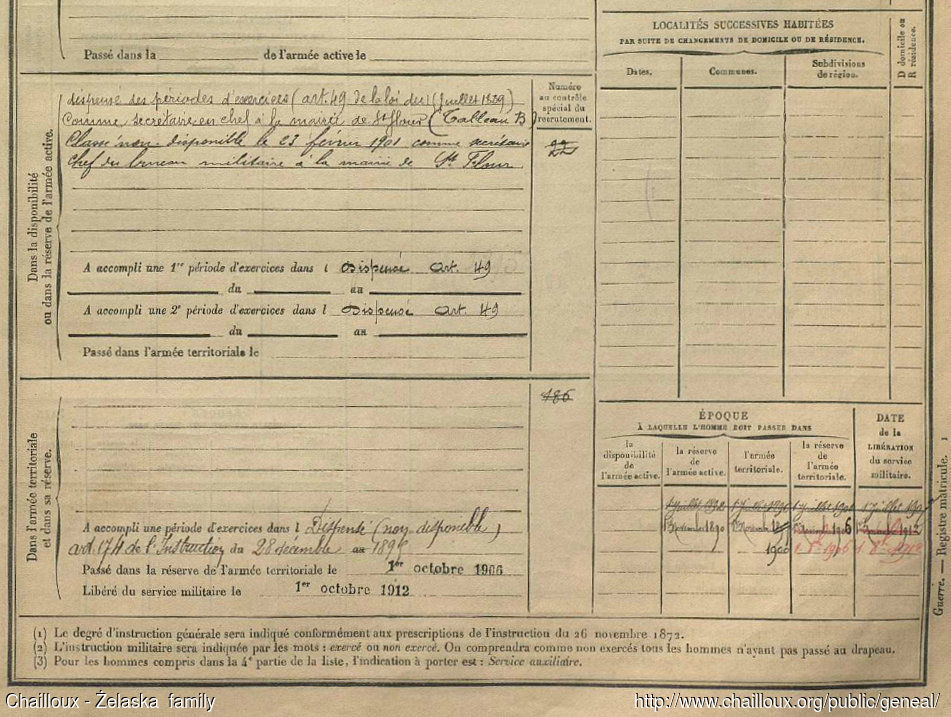 Passé dans la de l'armée active le
Dans la disponibilité
ou dans la réserve de l'armée active.
dispensé des périodes d'exercices (art. 49 de la loi du Juillet 1889)
Comme secrétaire en chef à la mairie de St Flour (Tableau B)
Classé non disponible le 23 février 1901 comme secrétaire
chef du bureau militaire à la mairie de St Flour
A accompli une 1re période d'exercices dans l Dispensé art. 49
du au
A accompli une 2e période d'exercices dans l Dispensé art. 49
du au
Passé dans l'armée territoriale le
Numéro
au contrôle
spécial du
recrutement.
22
186
Dans l'armée territoriale
et dans sa réserve.
A accompli une période d'exercices dans l Dispensé (non disponible)
art. 174 de l'Instruction du 28 décembre au
Passé dans la réserve de l'armée territoriale le 1er octobre 1906
Libéré du service militaire le 1er octobre 1912
LOCALITÉS SUCCESSIVES HABITÉES
PAR SUITE DE CHANGEMENTS DE DOMICILE OU DE RÉSIDENCE.
Dates. Communes. Subdivisions
de région.
D domicile ou
R résidence.
ÉPOQUE
À LAQUELLE L'HOMME DOIT PASSER DANS
la
disponibilité
de
l'armée active.
la réserve
de
l'armée active.
l'armée
territoriale.
la réserve
de
l'armée
territoriale.
DATE
de la
LIBÉRATION
du service
militaire.
1 juillet 1 juillet 1 juillet 1 juillet
1 Novembre 1890 1 Novembre 1906 1912
1900 1 8bre 1906 1 8bre 1912
Guerre. — Registre matricule.
(1) Le degré d'instruction générale sera indiqué conformément aux prescriptions de l'instruction du 26 novembre 1872.
(2) L'instruction militaire sera indiquée par les mots : exercé ou non exercé. On comprendra comme non exercés tous les hommes n'ayant pas passé au drapeau.
(3) Pour les hommes compris dans la 4e partie de la liste, l'indication à porter est : Service auxiliaire.
Chailloux - Żelaska family
http://www.chailloux.org/public/geneal/